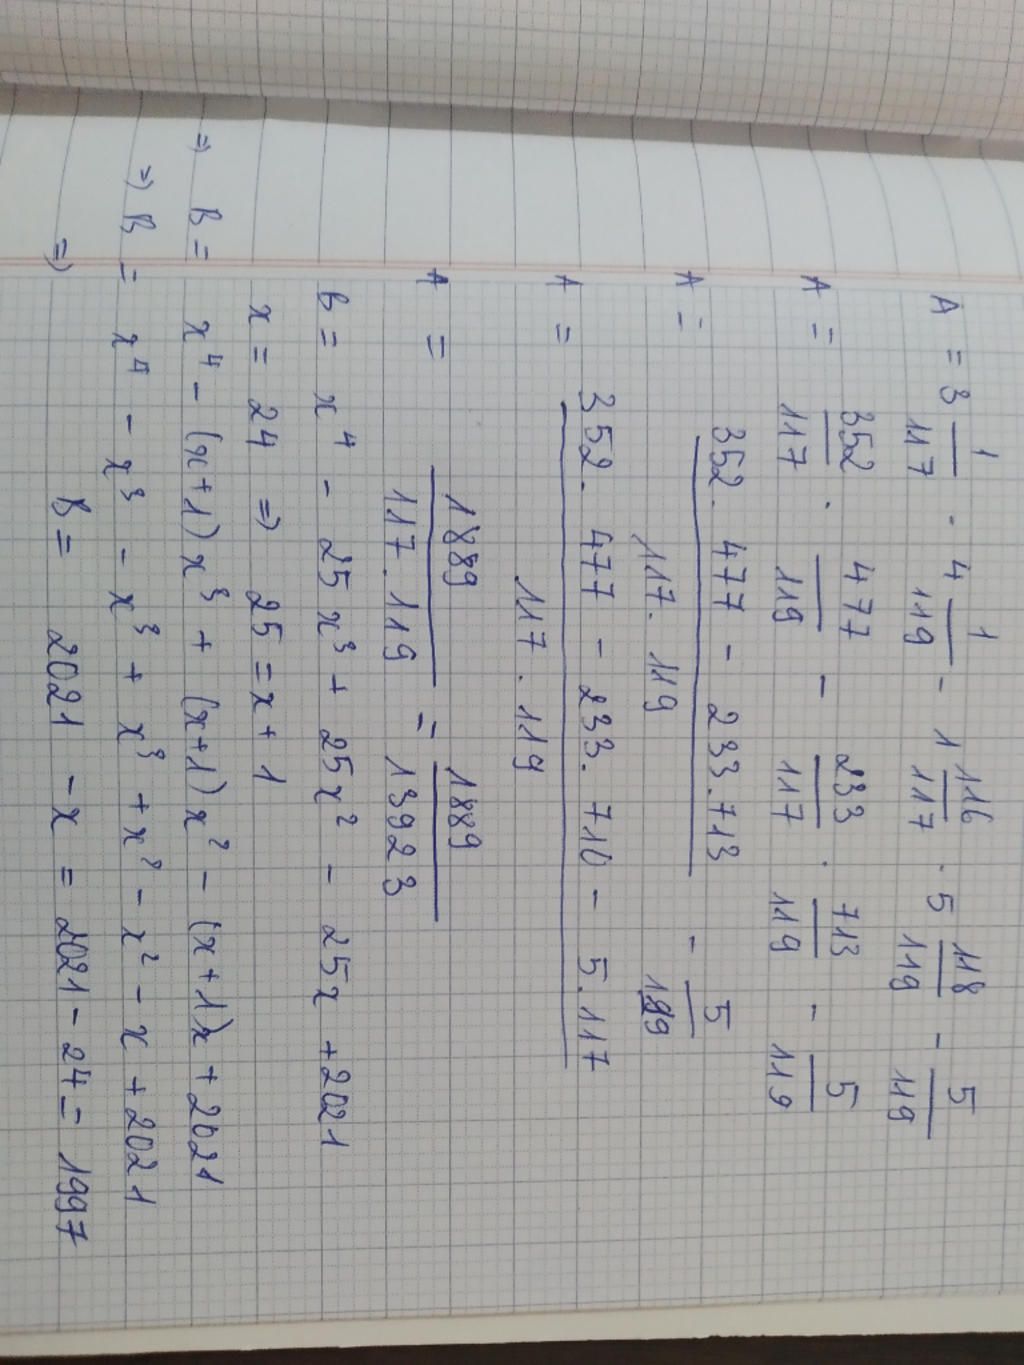 A = 3 1/117 . 4 1/119 - 1 116/117 . 5 118/119 - 5/119
A = 352/117 . 477/119 - 233/117 . 713/119 - 5/119
A = (352. 477 - 233.713)/(117. 119) - 5/119
A = (352. 477 - 233. 710 - 5.117)/(117 . 119)
A = 1889/(117.119) = 1889/13923
B = x⁴ - 25x³ + 25x² - 25x + 2021
x = 24 => 25 = x + 1
=> B = x⁴ - (x+1)x³ + (x+1)x² - (x+1)x + 2021
=> B = x⁴ - x³ - x³ + x³ + x² - x² - x + 2021
=> B = 2021 - x = 2021 - 24 = 1997